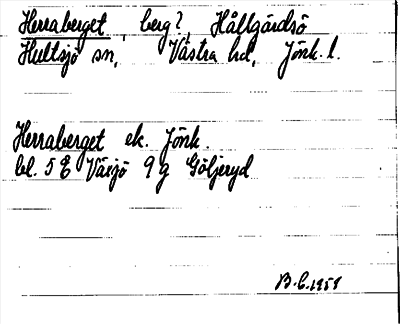 Herraberget, berg?, Hållgårdsö
Hultsjö sn, Västra hd, Jönk. l.
Herraberget ek. Jönk.
bl. 5 E Växjö 9 g Göljeryd
B.E.1959